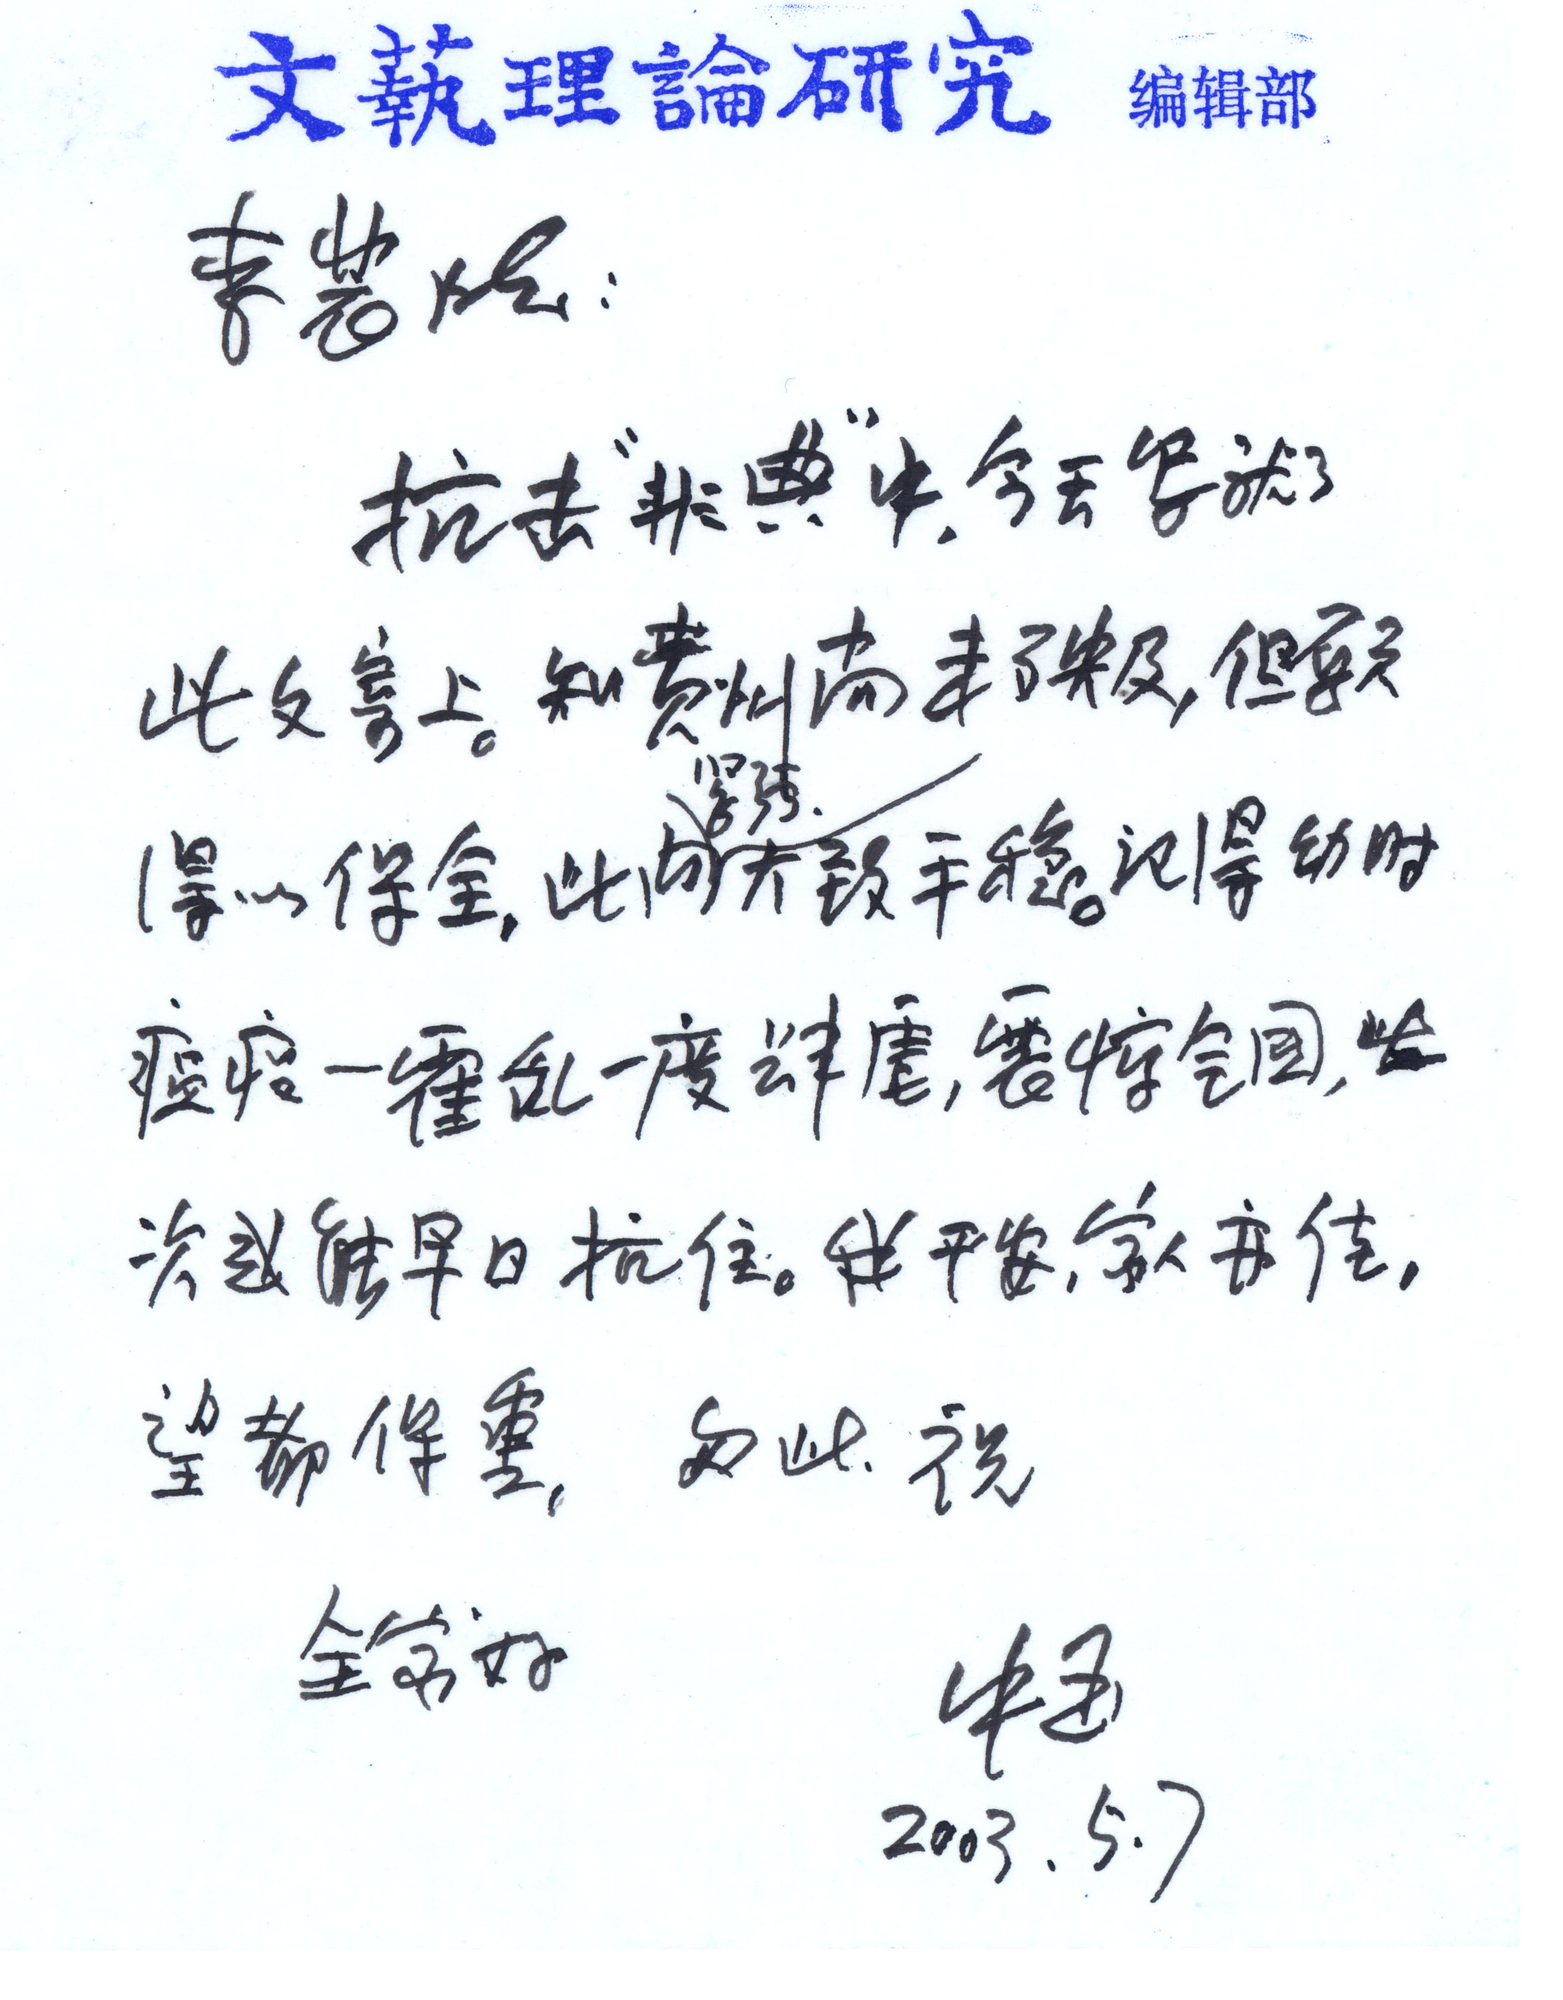 文藝理論研究 编辑部
李裴：
抗击“非典”中，今天写就了
此文寄上。知贵州尚未殃及，但愿
得以保全，此间大致平稳。记得幼时
上海
瘟疫一霍乱一度肆虐，震惊全国，此
次或能早日抗住。我平安，家人亦佳，
望都保重，匆此，祝
全家好
中玉
2003.5.7